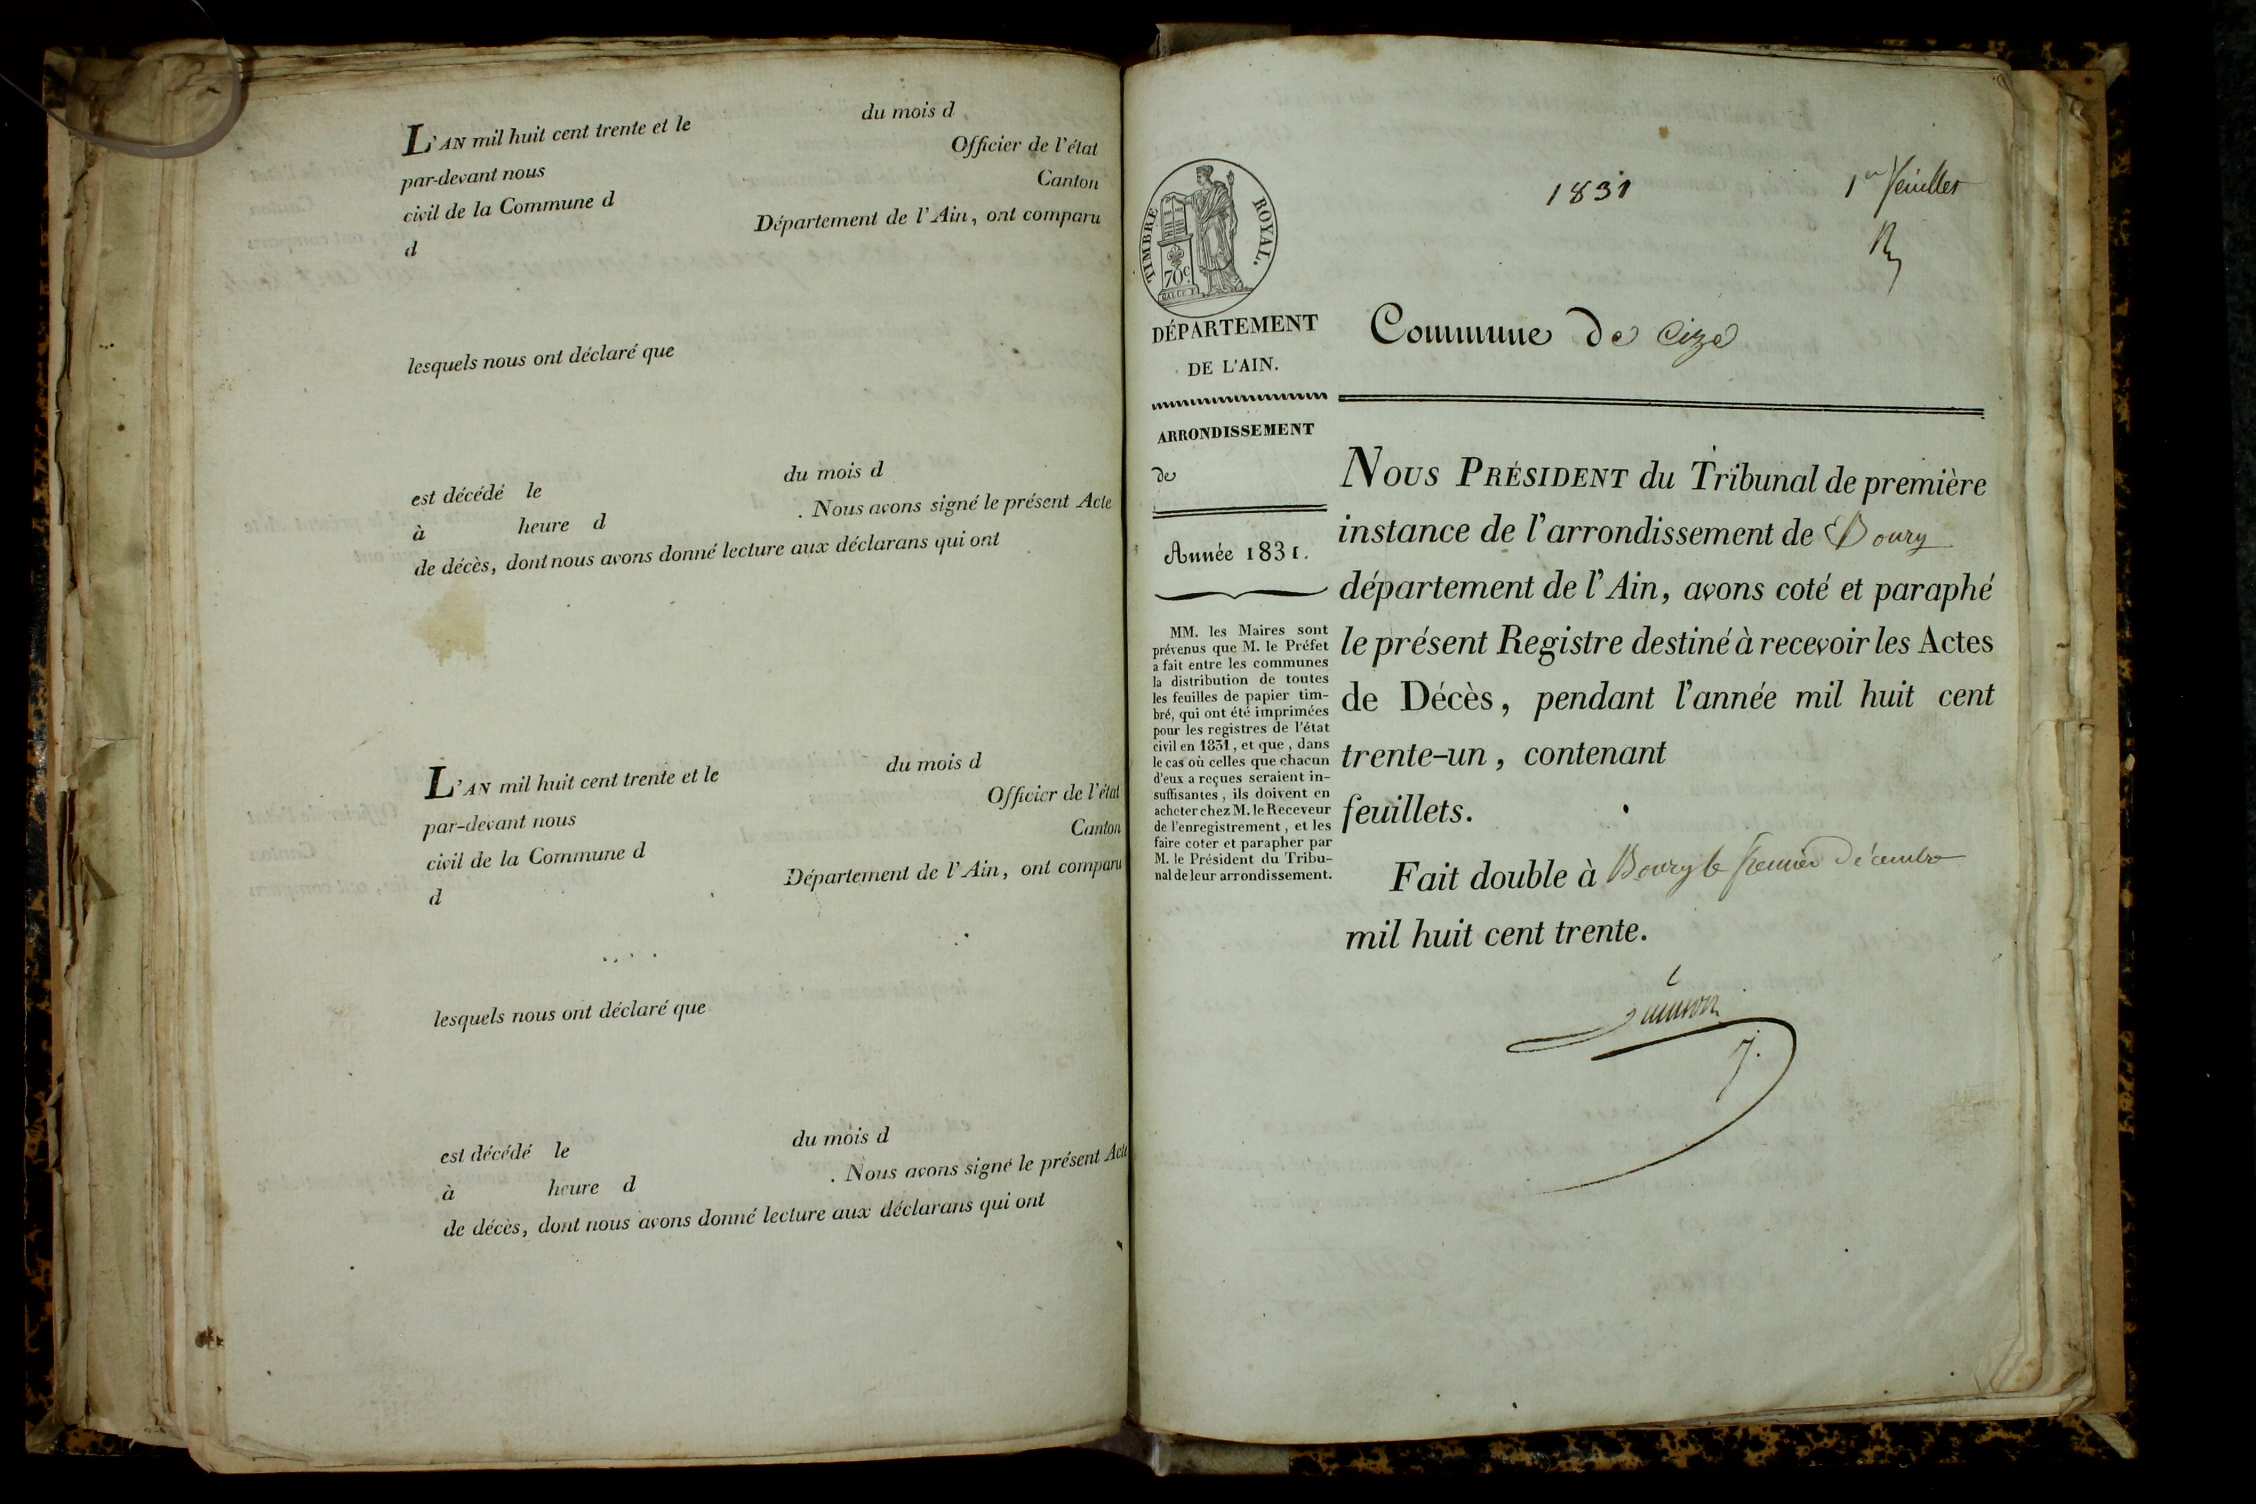 L'AN mil huit cent trente et le du mois d
par-devant nous Officier de l'état
civil de la Commune d Canton
d Département de l'Ain, ont comparu
lesquels nous ont déclaré que
est décédé le du mois d
à heure d . Nous avons signé le présent Acte
de décès, dont nous avons donné lecture aux déclarans qui ont
L'AN mil huit cent trente et le du mois d
par-devant nous Officier de l'état
civil de la Commune d Canton
d Département de l'Ain, ont comparu
lesquels nous ont déclaré que
est décédé le du mois d
à heure d . Nous avons signé le présent Acte
de décès, dont nous avons donné lecture aux déclarans qui ont
1831 1er feuillet
TIMBRE ROYAL.
70c.
DÉPARTEMENT
DE L'AIN.
ARRONDISSEMENT
de
Année 1831.
MM. les Maires sont
prévenus que M. le Préfet
a fait entre les communes
la distribution de toutes
les feuilles de papier tim-
bré, qui ont été imprimées
pour les registres de l'état
civil en 1831, et que, dans
le cas où celles que chacun
d'eux a reçues seraient in-
suffisantes, ils doivent en
acheter chez M. le Receveur
de l'enregistrement, et les
faire coter et parapher par
M. le Président du Tribu-
nal de leur arrondissement.
Commune de Cize
NOUS PRÉSIDENT du Tribunal de première
instance de l'arrondissement de Bourg
département de l'Ain, avons coté et paraphé
le présent Registre destiné à recevoir les Actes
de Décès, pendant l'année mil huit cent
trente-un, contenant
feuillets.
Fait double à Bourg le premier Décembre
mil huit cent trente.